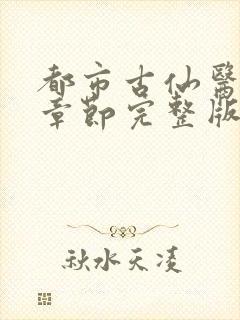 都市古仙醫
章節完整版
秋水天凌